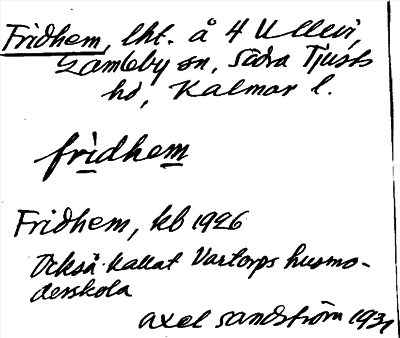 Fridhem, lht. å 4 Ullevi,
Gamleby sn, Södra Tjusts
hd, Kalmar l.
fridhem
Fridhem, kb 1926
Också kallat Vartorps husmo-
derskola
Axel Sandström 1931